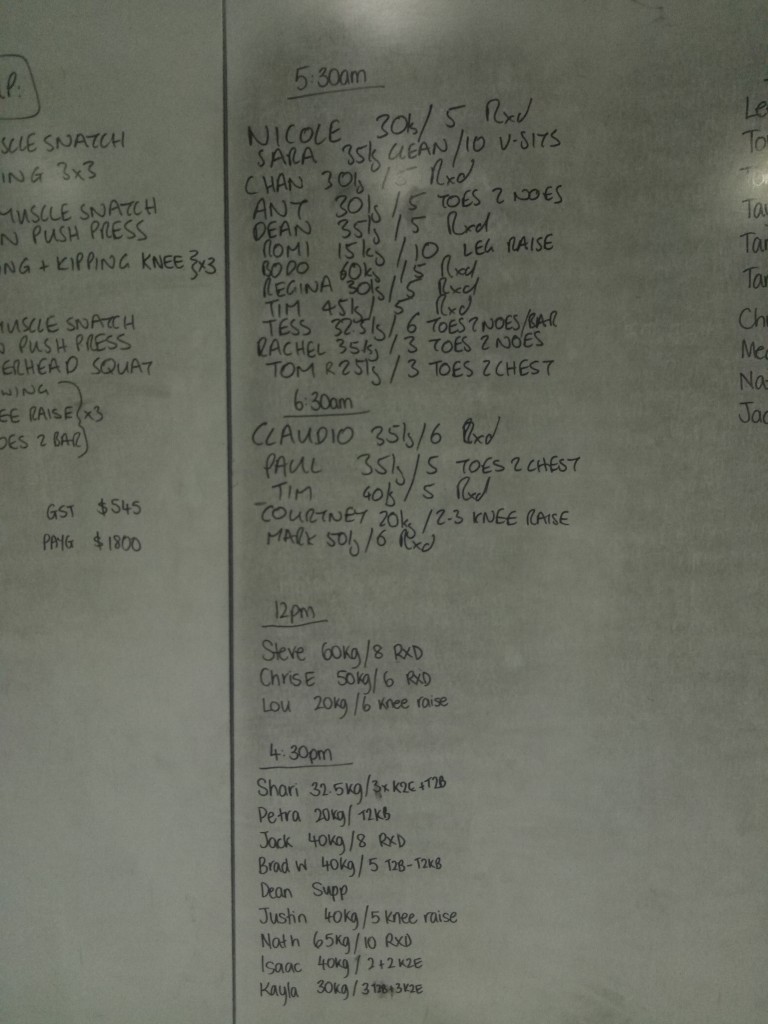 P:
SCLE SNATCH
ING 3x3
MUSCLE SNATCH
N PUSH PRESS
NG + KIPPING KNEE }x3
MUSCLE SNATCH
N PUSH PRESS
ERHEAD SQUAT
WING
EE RAISE }x3
OES 2 BAR
GST $545
PAYG $1800
5:30am
NICOLE 30kg/5 Rxd
SARA 35kg CLEAN/10 V-SITS
CHAN 30kg/5 Rxd
ANT 30kg/5 TOES 2 NOES
DEAN 35kg/5 Rxd
ROMI 15kg/10 LEG RAISE
BODO 60kg/5 Rxd
REGINA 30kg/5 Rxd
TIM 45kg/5 Rxd
TESS 32.5kg/6 TOES 2 NOES/BAR
RACHEL 35kg/3 TOES 2 NOES
TOM R 25kg/3 TOES 2 CHEST
6:30am
CLAUDIO 35kg/6 Rxd
PAUL 35kg/5 TOES 2 CHEST
TIM 40kg/5 Rxd
COURTNEY 20kg/2-3 KNEE RAISE
MARK 50kg/6 Rxd
12pm
Steve 60kg/8 RXD
Chris E 50kg/6 RXD
Lou 20kg/6 Knee raise
4:30pm
Shari 32.5kg/3x K2C+T2B
Petra 20kg/T2KB
Jack 40kg/8 RXD
Brad W 40kg/5 T2B-T2KB
Dean Supp
Justin 40kg/5 Knee raise
Nath 65kg/10 RXD
Isaac 40kg/2+2 K2E
Kayla 30kg/3 T2B+3K2E
Le
To
Ta
Tar
Tar
Ch
Me
Na
Jac